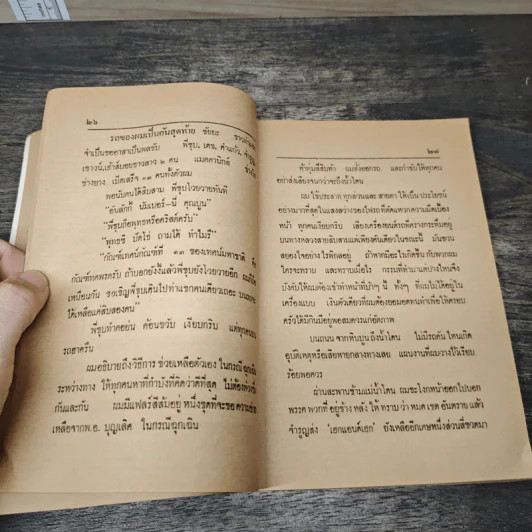 ๒๖
รถของผมเป็นคันสุดท้าย ชัยยะ
จำเป็นขออาสาเป็นพลขับ พี่ชุบ, เดช, คำแก้ว,
เชาวน์, เข้าล้นอยชาวลาว ๒ คน แมคคานิกส์
ช่างยาง เบ็ดเสร็จ ๑๓ คนทั้งตัวผม
พอนับคนได้สิบสาม พี่ชุบโวยวายทันที
“อันลักกี้ นัมเบอร์-นี่ คุณบูน”
“พี่ชุบถือพุทธหรือคริสต์ครับ”
“พุทธซิ บัดโธ่ ถามได้ ทำไมรึ”
“กัณฑ์เทศน์กัณฑ์ที่ ๑๓ ของเทศน์มหาชาติ
กัณฑ์ทศพรครับ ถ้าบอกยังงี้แล้วพี่ชุบยังโวยวายอีก
เหมือนกัน ขอเชิญพี่ชุบเดินไปท้าแขกคนเดียวเถอะ
ได้เหลือแค่สิบสองคน”
พี่ชุบทำคอย่น ค้อนขวับ เงียบกริบ แต่ทุกคน
รถฮาครืน
ผมอธิบายถึงวิธีการ ช่วยเหลือตัวเอง ในกรณี ฉุกเฉิน
ระหว่างทาง ให้ทุกคนหาที่กำบังที่คิดว่าดีที่สุด ไม่ต้องห่วง
กันและกัน ผมมีแฟลร์สีส้มอยู่ หนึ่งชุดที่จะขอ ความช่วย
เหลือจากพ.อ. บุญเลิศ ในกรณีฉุกเฉิน
๒๗
ห้าทุ่มสี่สิบห้า ผมสั่งออกรถ และกำชับให้ทุกคน
อย่าส่งเสียงจนกว่าจะถึงน้ำโดน
ผม ใช้ประสาท ทุกส่วนและ สายตา ให้เป็น ประโยชน์
อย่างมากที่สุดในแสงสว่างของไฟรถที่ตัดแหวกความมืดเบื้อง
หน้า ทุกคนเงียบกริบ เสียงเครื่องยนต์รถดังครางกระหึ่มอยู่
บนทางหลวงสายลับสามแต่เพียงคันเดียวในขณะนี้ มันชวน
สยองใจอย่างไรพิกลอยู่ ถ้าหากมีอะไรเกิดขึ้น กับพวกผม
ใครจะทราบ และทราบเมื่อไร กรรมที่ทำมาแต่ปางไหนจึง
บังคับให้ผมต้องเข้าทำหน้าที่บ้าๆ นี้ ทั้งๆ ที่ผมไม่ได้อยู่ใน
เครื่องแบบ เงินตัวเดียวที่ผมต้องยอมอดทนทำเพื่อให้ครอบ
ครัวได้มีกินมีอยู่พอสมควรแก่อัตภาพ
บนถนน จากหินบูน ถึงน้ำโดน ไม่มีรถคัน ไหนเกิด
อุบัติเหตุหรือเสียหายกลางทางเลย แผนงานที่ผมวางไว้เรียบ
ร้อยพอควร
ผ่านสะพานข้ามแม่น้ำโดน ผมชะโงกหน้าออกไปบอก
พรรค พวกที่ อยู่ข้าง หลัง ให้ ทราบ ว่า หมด เขต อันตราย แล้ว
จำรูญส่ง ‘เฮกแอนด์เฮก’ ยังเหลืออีกเศษหนึ่งส่วนสี่ขวดมา